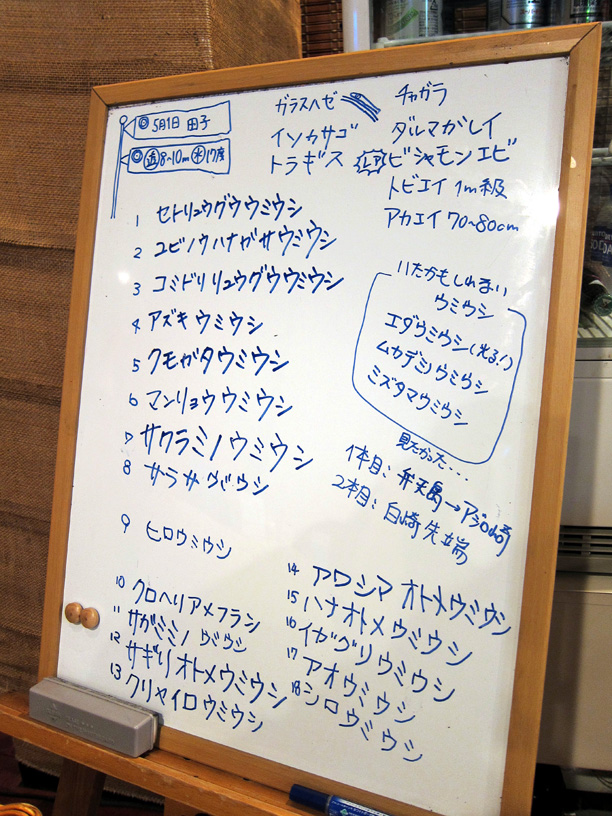 ◎ 5月1日 田子
◎ 透 8〜10m 水 17度
ガラスハゼ
イソカサゴ
トラギス
チャガラ
ダルマガレイ
ビシャモンエビ
トビエイ 1m級
アカエイ 70〜80cm
1 セトリュウグウウミウシ
2 ユビノウハナガサウミウシ
3 コミドリリュウグウウミウシ
4 アズキウミウシ
5 クモガタウミウシ
6 マンリョウウミウシ
7 サクラミノウミウシ
8 サラサウミウシ
9 ヒロウミウシ
10 クロヘリアメフラシ
11 サガミミノウミウシ
12 サギリオトメウミウシ
13 クリヤイロウミウシ
14 アワシマオトメウミウシ
15 ハナオトメウミウシ
16 イガグリウミウシ
17 アオウミウシ
18 シロウミウシ
いたかもしれない
ウミウシ
エダウミウシ(光る!)
ムカデミノウミウシ
ミズタマウミウシ
見たかった....
1本目: 弁天島→アジロ崎
2本目: 白崎先端